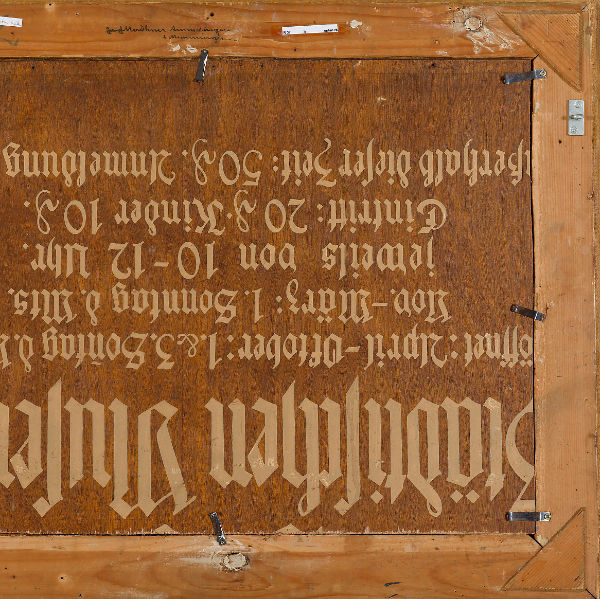 Städtischen Muse
öffnet: April-Oktober: 1.&3. Sonntag d. M
Nov.-März: 1. Sonntag d. Mts.
jeweils von 10-12 Uhr.
Eintritt: 20 ₰. Kinder 10 ₰.
ußerhalb dieser Zeit: 50 ₰. Anmeldung